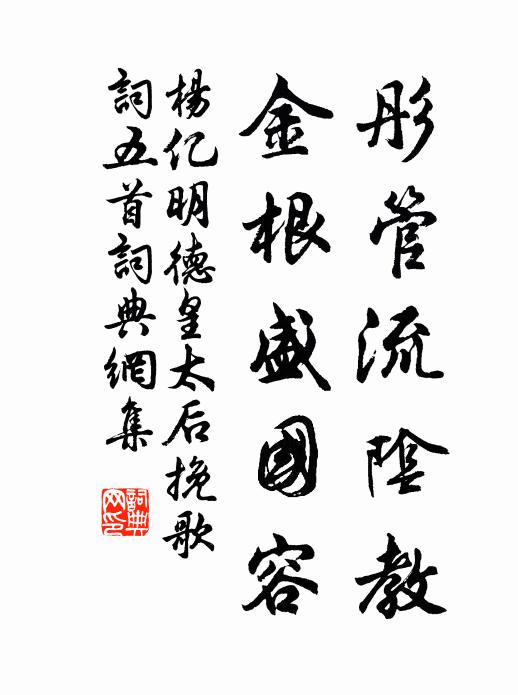 彤管流陰教
金根盛國容
楊亿明德皇太后挽歌
詞五首詞典網集
詞典
网印